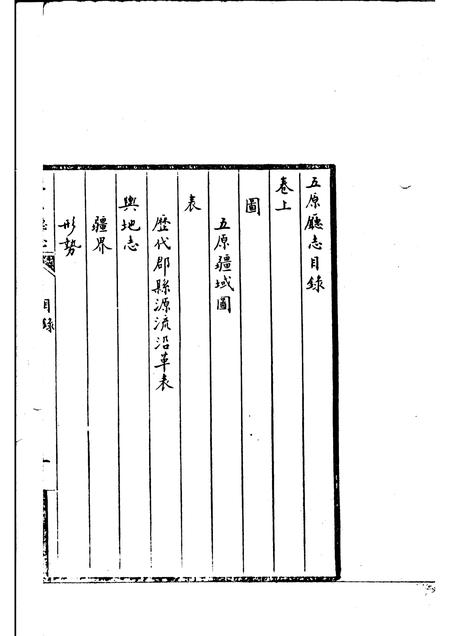 五原廳志目錄
卷上
圖
五原疆域圖
表
歷代郡縣源流沿革表
輿地志
疆界
形勢
目錄